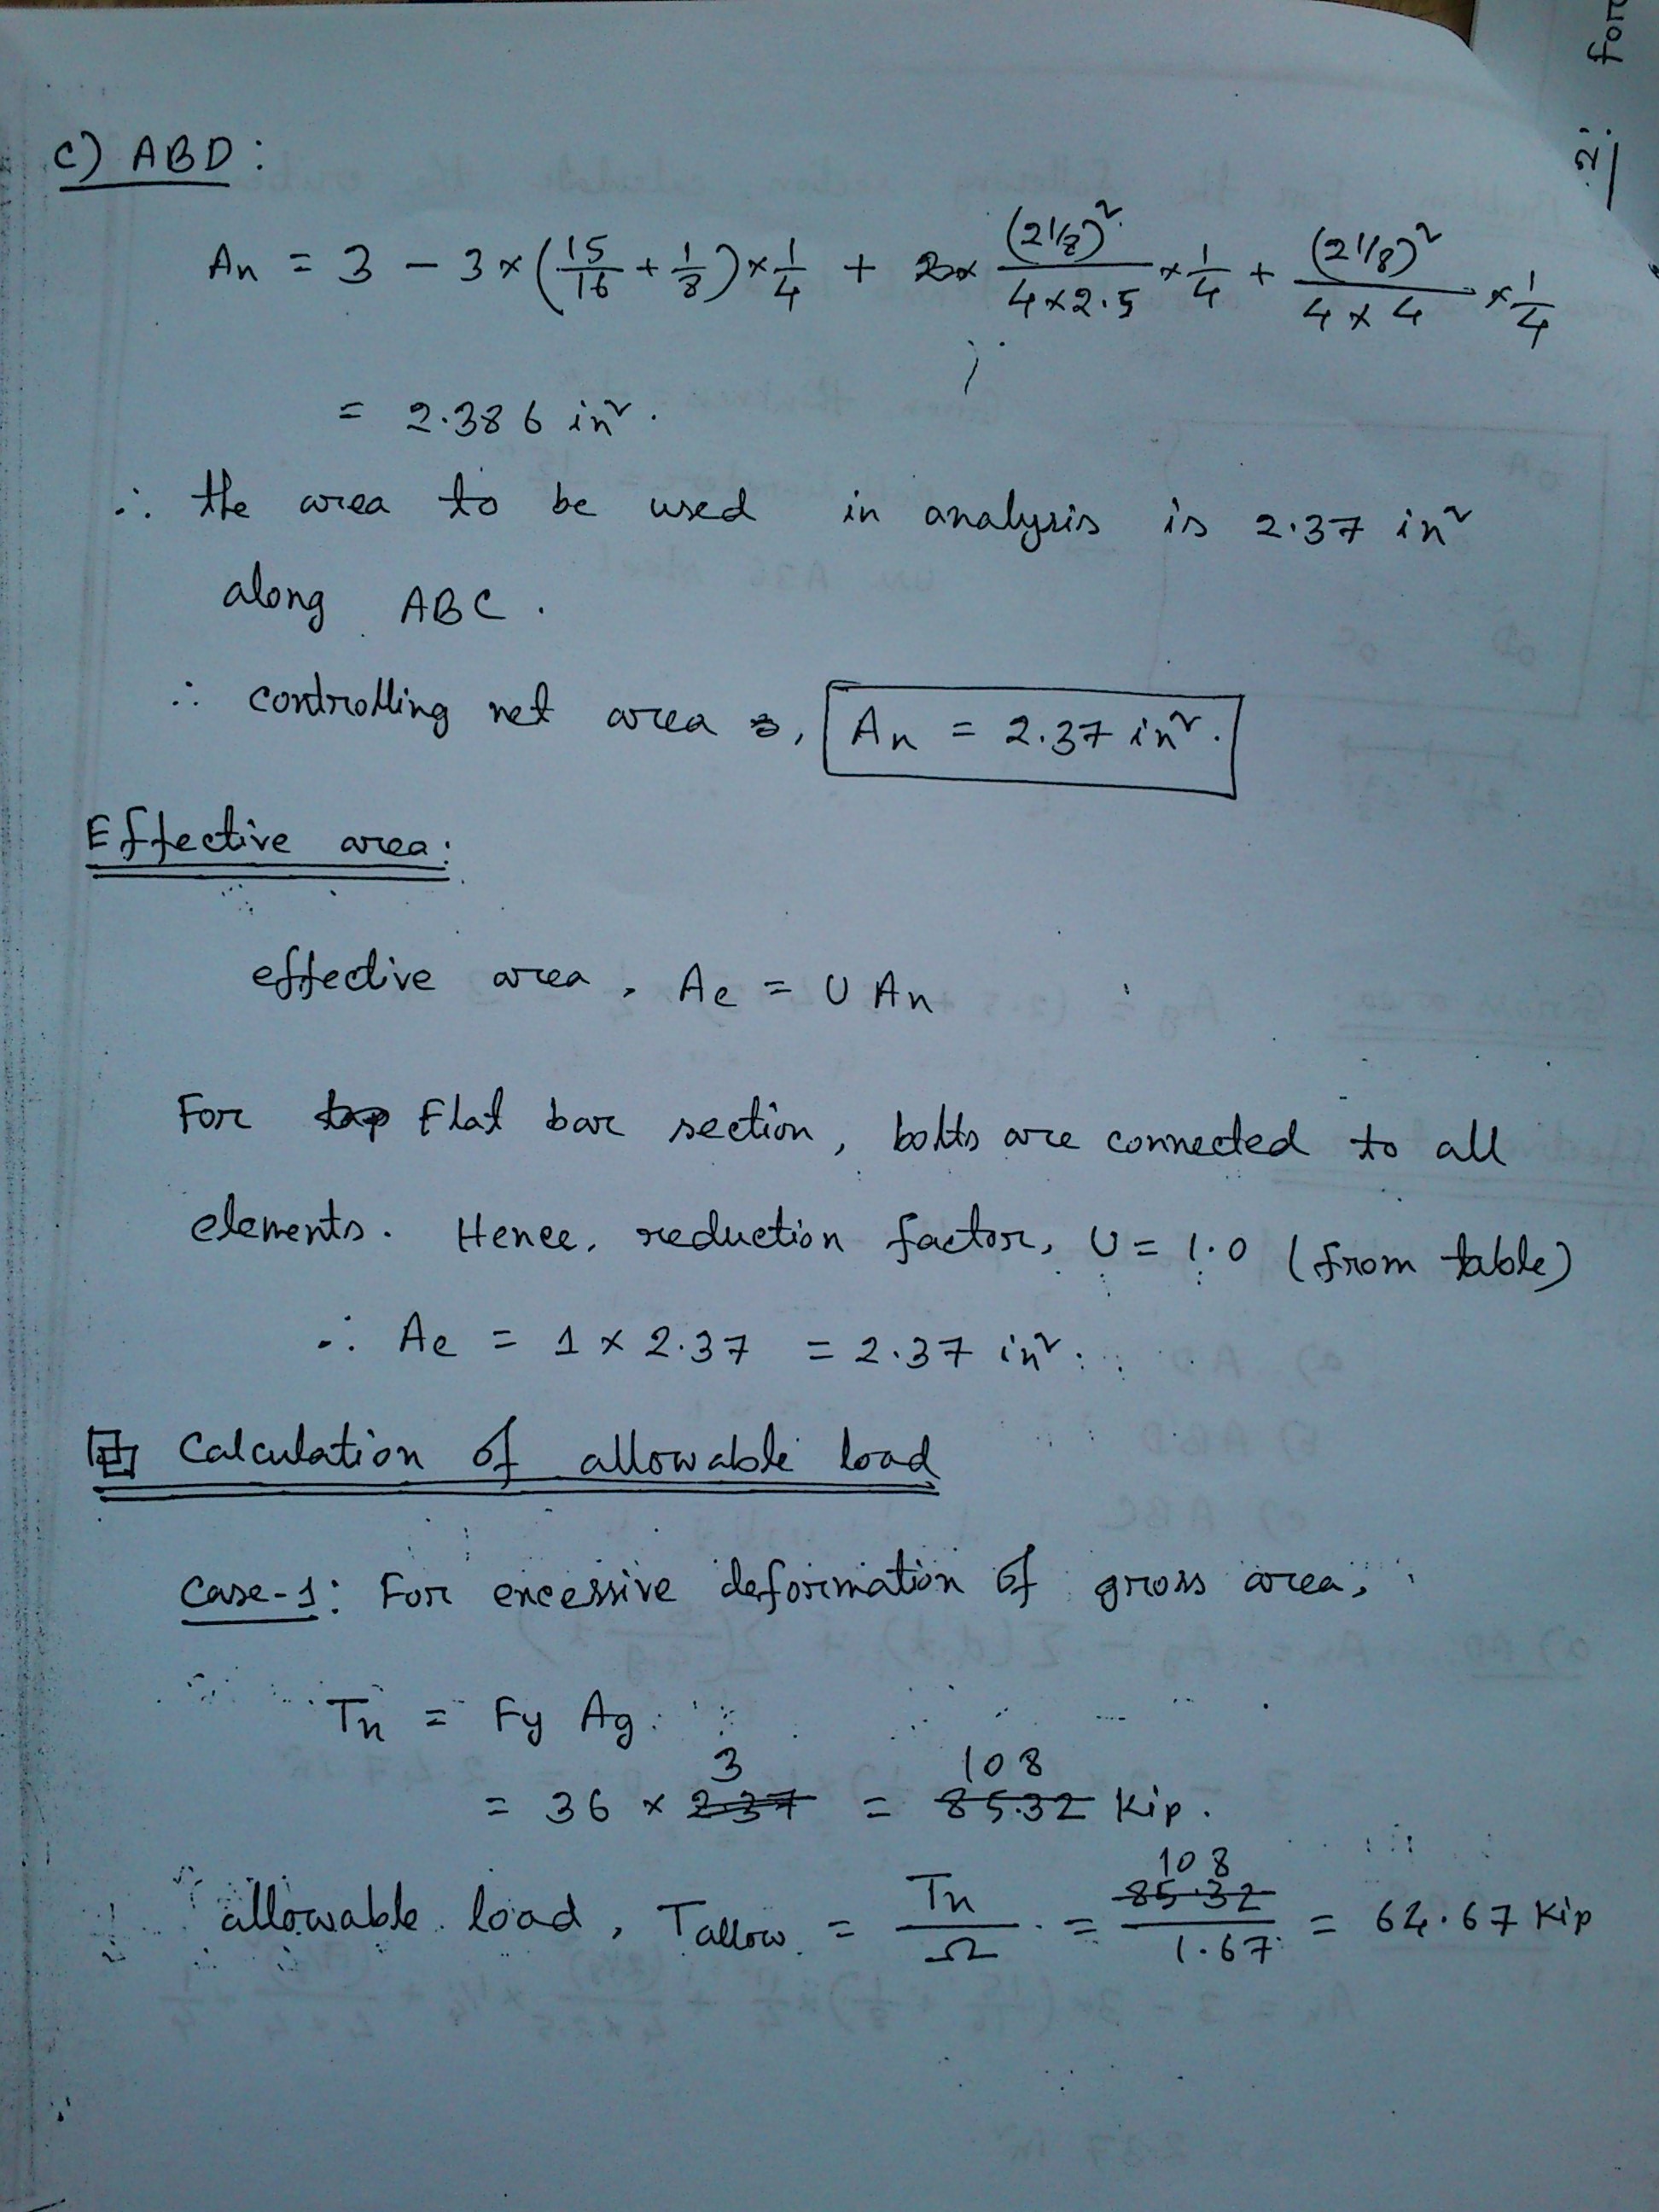 for
2/
c) ABD:
An = 3 − 3×(15/16 + 1/8)×1/4 + (2 1/8)²/(4×2.5) ×1/4 + (2 1/8)²/(4×4) ×1/4
= 2.386 in².
∴ the area to be used in analysis is 2.37 in²
along ABC.
∴ controlling net area , An = 2.37 in².
Effective area:
effective area, Ae = U An
For Flat bar section, bolts are connected to all
elements. Hence, reduction factor, U = 1.0 (from table)
∴ Ae = 1 × 2.37 = 2.37 in².
Calculation of allowable load
Case-1: For excessive deformation of gross area,
Tn = Fy Ag
3 108
= 36 × 2.37 = 85.32 Kip.
108
allowable load, Tallow = Tn/Ω = 85.32/1.67 = 64.67 Kip